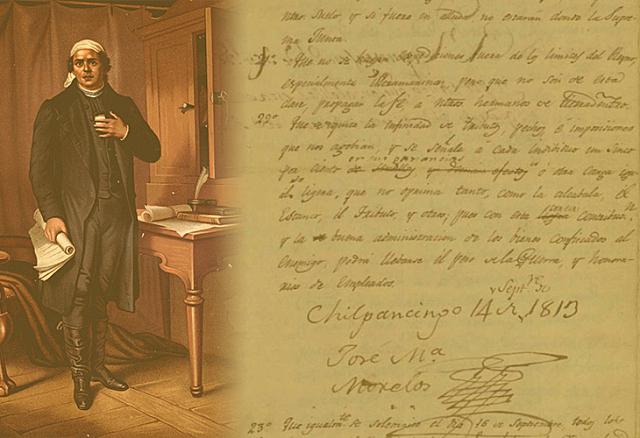 ntro. Suelo, y si fuera en ellos no estaran donde la Supre
ma Junta.
Que no se hagan expediciones fuera de los limites del Reyno,
especialmente ultramarinas, pero que no son de esta
clase propagar la fe a ntros hermanos de tierradentro.
22º Que se quite la infinidad de tributos, pechos é imposiciones
que nos agobian, y se señale á cada individuo un cinco
por ciento de semillas y demas efectos ú otra carga igual
en sus ganancias
ligera, que no oprima tanto, como la alcabala, el
Estanco, el Tributo, y otros, pues con esta contribucion
y la buena administracion de los bienes confiscados al
Enemigo, podrá llebarse el peso de la Guerra, y honora-
rios de Empleados.
Chilpancingo 14 de Septre de 1813
José Mª
Morelos
23º Que igualmte se solemnise el dia 16 de Septiembre, todos los